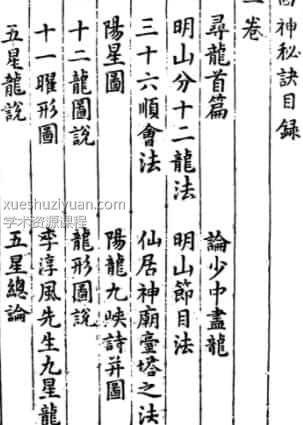 神秘訣目錄
卷
尋龍首篇 論少中盡龍
明山分十二龍法 明山節目法
三十六順會法 仙居神廟臺塔之法
陽星圖 陽龍九峽詩并圖
十二龍圖說 龍形圖說
十一曜形圖 李淳風先生九星龍
五星龍說 五星總論
xueshuziyuan.com
学术资源课程